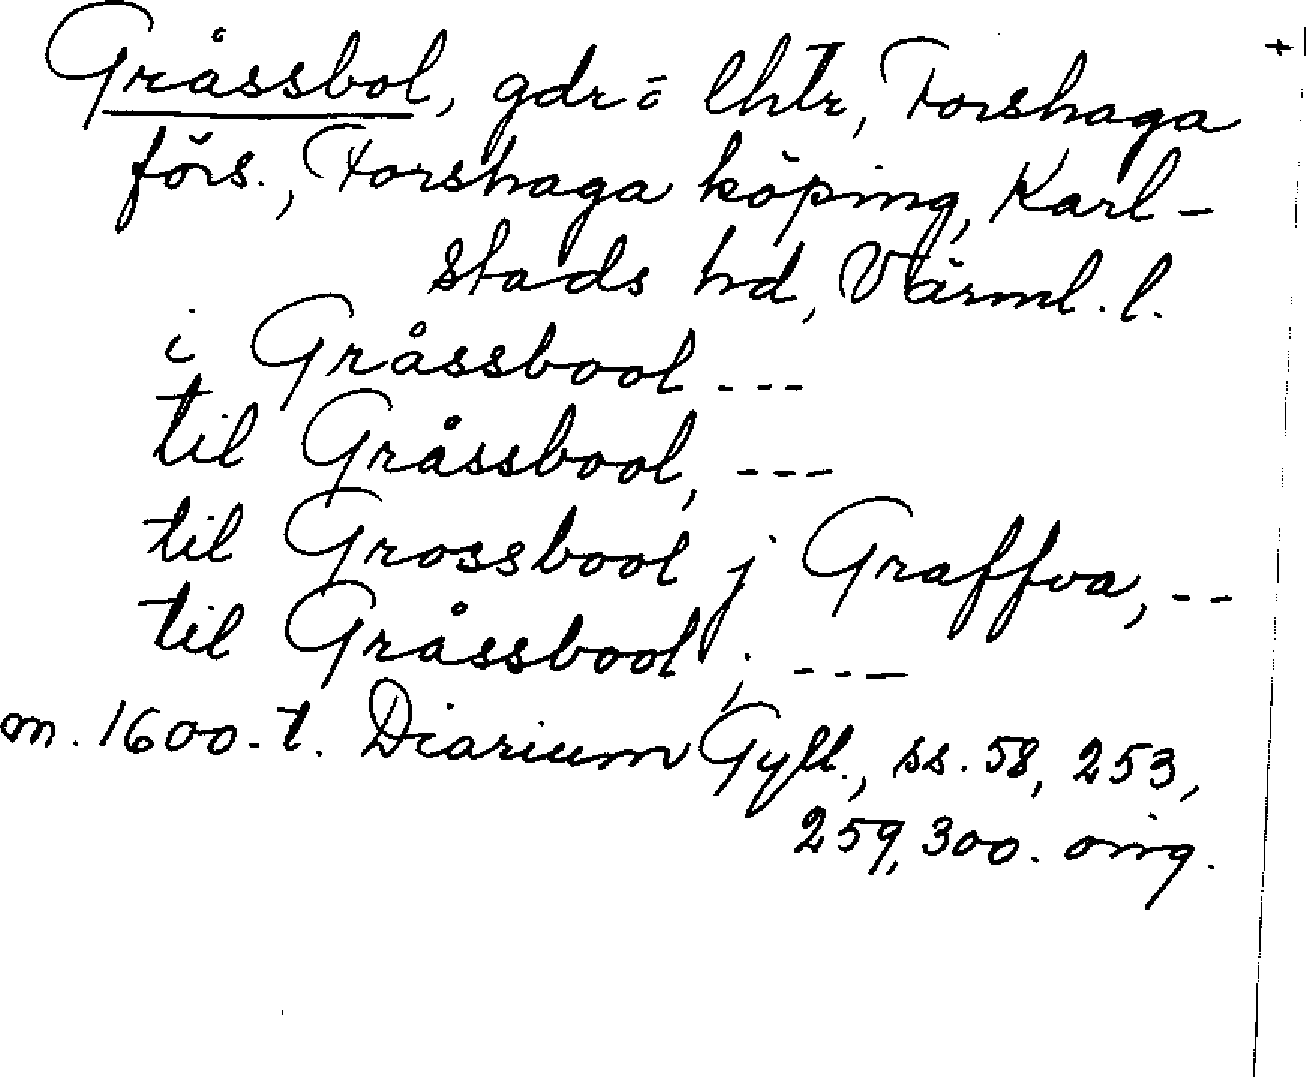 Gråssbol, gdr o lhtr, Forshaga
förs., Forshaga köping, Karl-
stads hd, Värml. l.
i Gråssbool ---
til Gråssbool, ---
til Grossbool j Graffva, --
til Gråssbool; ---
m. 1600-t. Diarium Gyll., ss. 58, 253,
259, 300. orig.